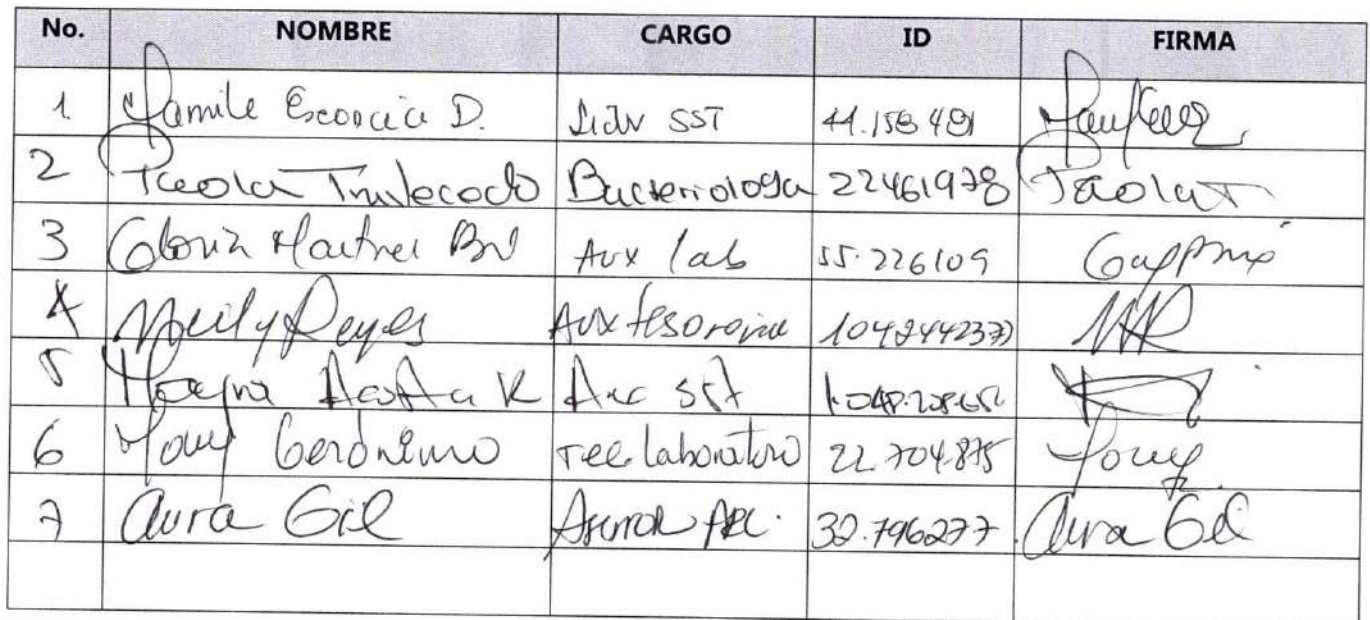 No. NOMBRE CARGO ID FIRMA
1. Yamile Escorcia D. Lider SST 44.158481
2 Paola Trulecodo Bacteriologa 22461978 Paola T
3 Gloria Martinez Aux lab 55.226109
4 Meily Reyes Aux tesoreria MR
5 Acosta K SST
6 Geronimo Tec. Laboratorio 22.704.875
7 Aura Gil Asesor ARL. 32.796277. Aura Gil